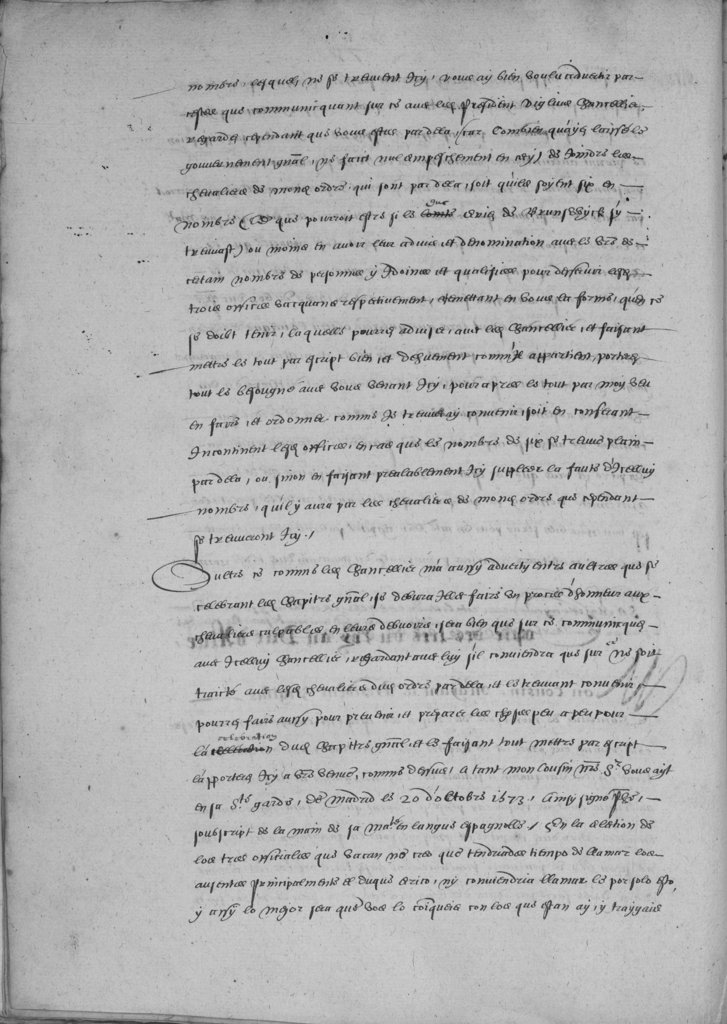 nombre, lesquelz ne se treuvent Icy, vous ay bien voulu advertir par
ceste que communicquant sur ce avec led. President Viglius Chancellier,
regardez cependant que vous estes pardela, (car Combien qu'ayez laissé le
gouvernement gnal, ne faict nul empeschement en cecy) de Joindre les
chevaliers de mond. ordre, qui sont pardela, soit qu'ilz soyent six en
nombre (Ce que pourroit estre si le duc Eric de Brunswyck s'y
treuvast) ou moins en avoir leur advis et denomination avec le vre de
certain nombre de personnes ydoines et qualifiees pour desservir lesd.
trois offices vacquans respectivement, remettant en vous la forme, qu'en ce
se doibt tenir, laquelle pourrez adviser, avec led. Chancellier, et faisant
mettre le tout par escript bien et deheuement comm'Il appartient, porterez
tout le besoigné avec vous venant Icy, pour apres le tout par moy veu
en faire, et ordonner, comme Je treuveray convenir, soit en conferant
Incontinent lesd. offices, en cas que le nombre de six se treuve plain
pardela, ou sinon en faisant prealablement Icy suppleer la faulte d'Icelluy
nombre, qu'il y aura par les chevaliers de mond. ordre que cependant
se treuveront Icy./
Oultre ce comme led. Chancellier m'a aussy adverty entre aultres que se
celebrant led. Chapitre gnal, se debvra Illecq faire un proces d'honneur aux
chevaliers culpables en leurs debvoirs, sera bien que sur ce communicquez
avec Icelluy Chancellier, regardant avec luy s'il conviendra que sur ce soit
traicté avec lesd. chevaliers dud. ordre pardela, et le treuvant convenir,
pourrez faire aussy pour prevenir et preparer les choses peu a peu pour
la celebration dud. Chapitre gnal, et le faisant tout mettre par escript
l'apporterez Icy a vre venue, comme dessus, a tant mon Cousin nre Sr vous ayt
en sa Ste garde, de Madrid le 20 d'octobre 1573, Ainsy signé Phle,
soubscript de la main de sa Mate en langue espagnolle, / En la election de
los tres officiales que vacan no creo que tendriades tiempo de llamar los
ausentes principalmente el duque Erico, ny conviendria llamarle por solo esto,
y assy lo mejor sera que vos lo comuniqueis con los que estan ay, y traygais